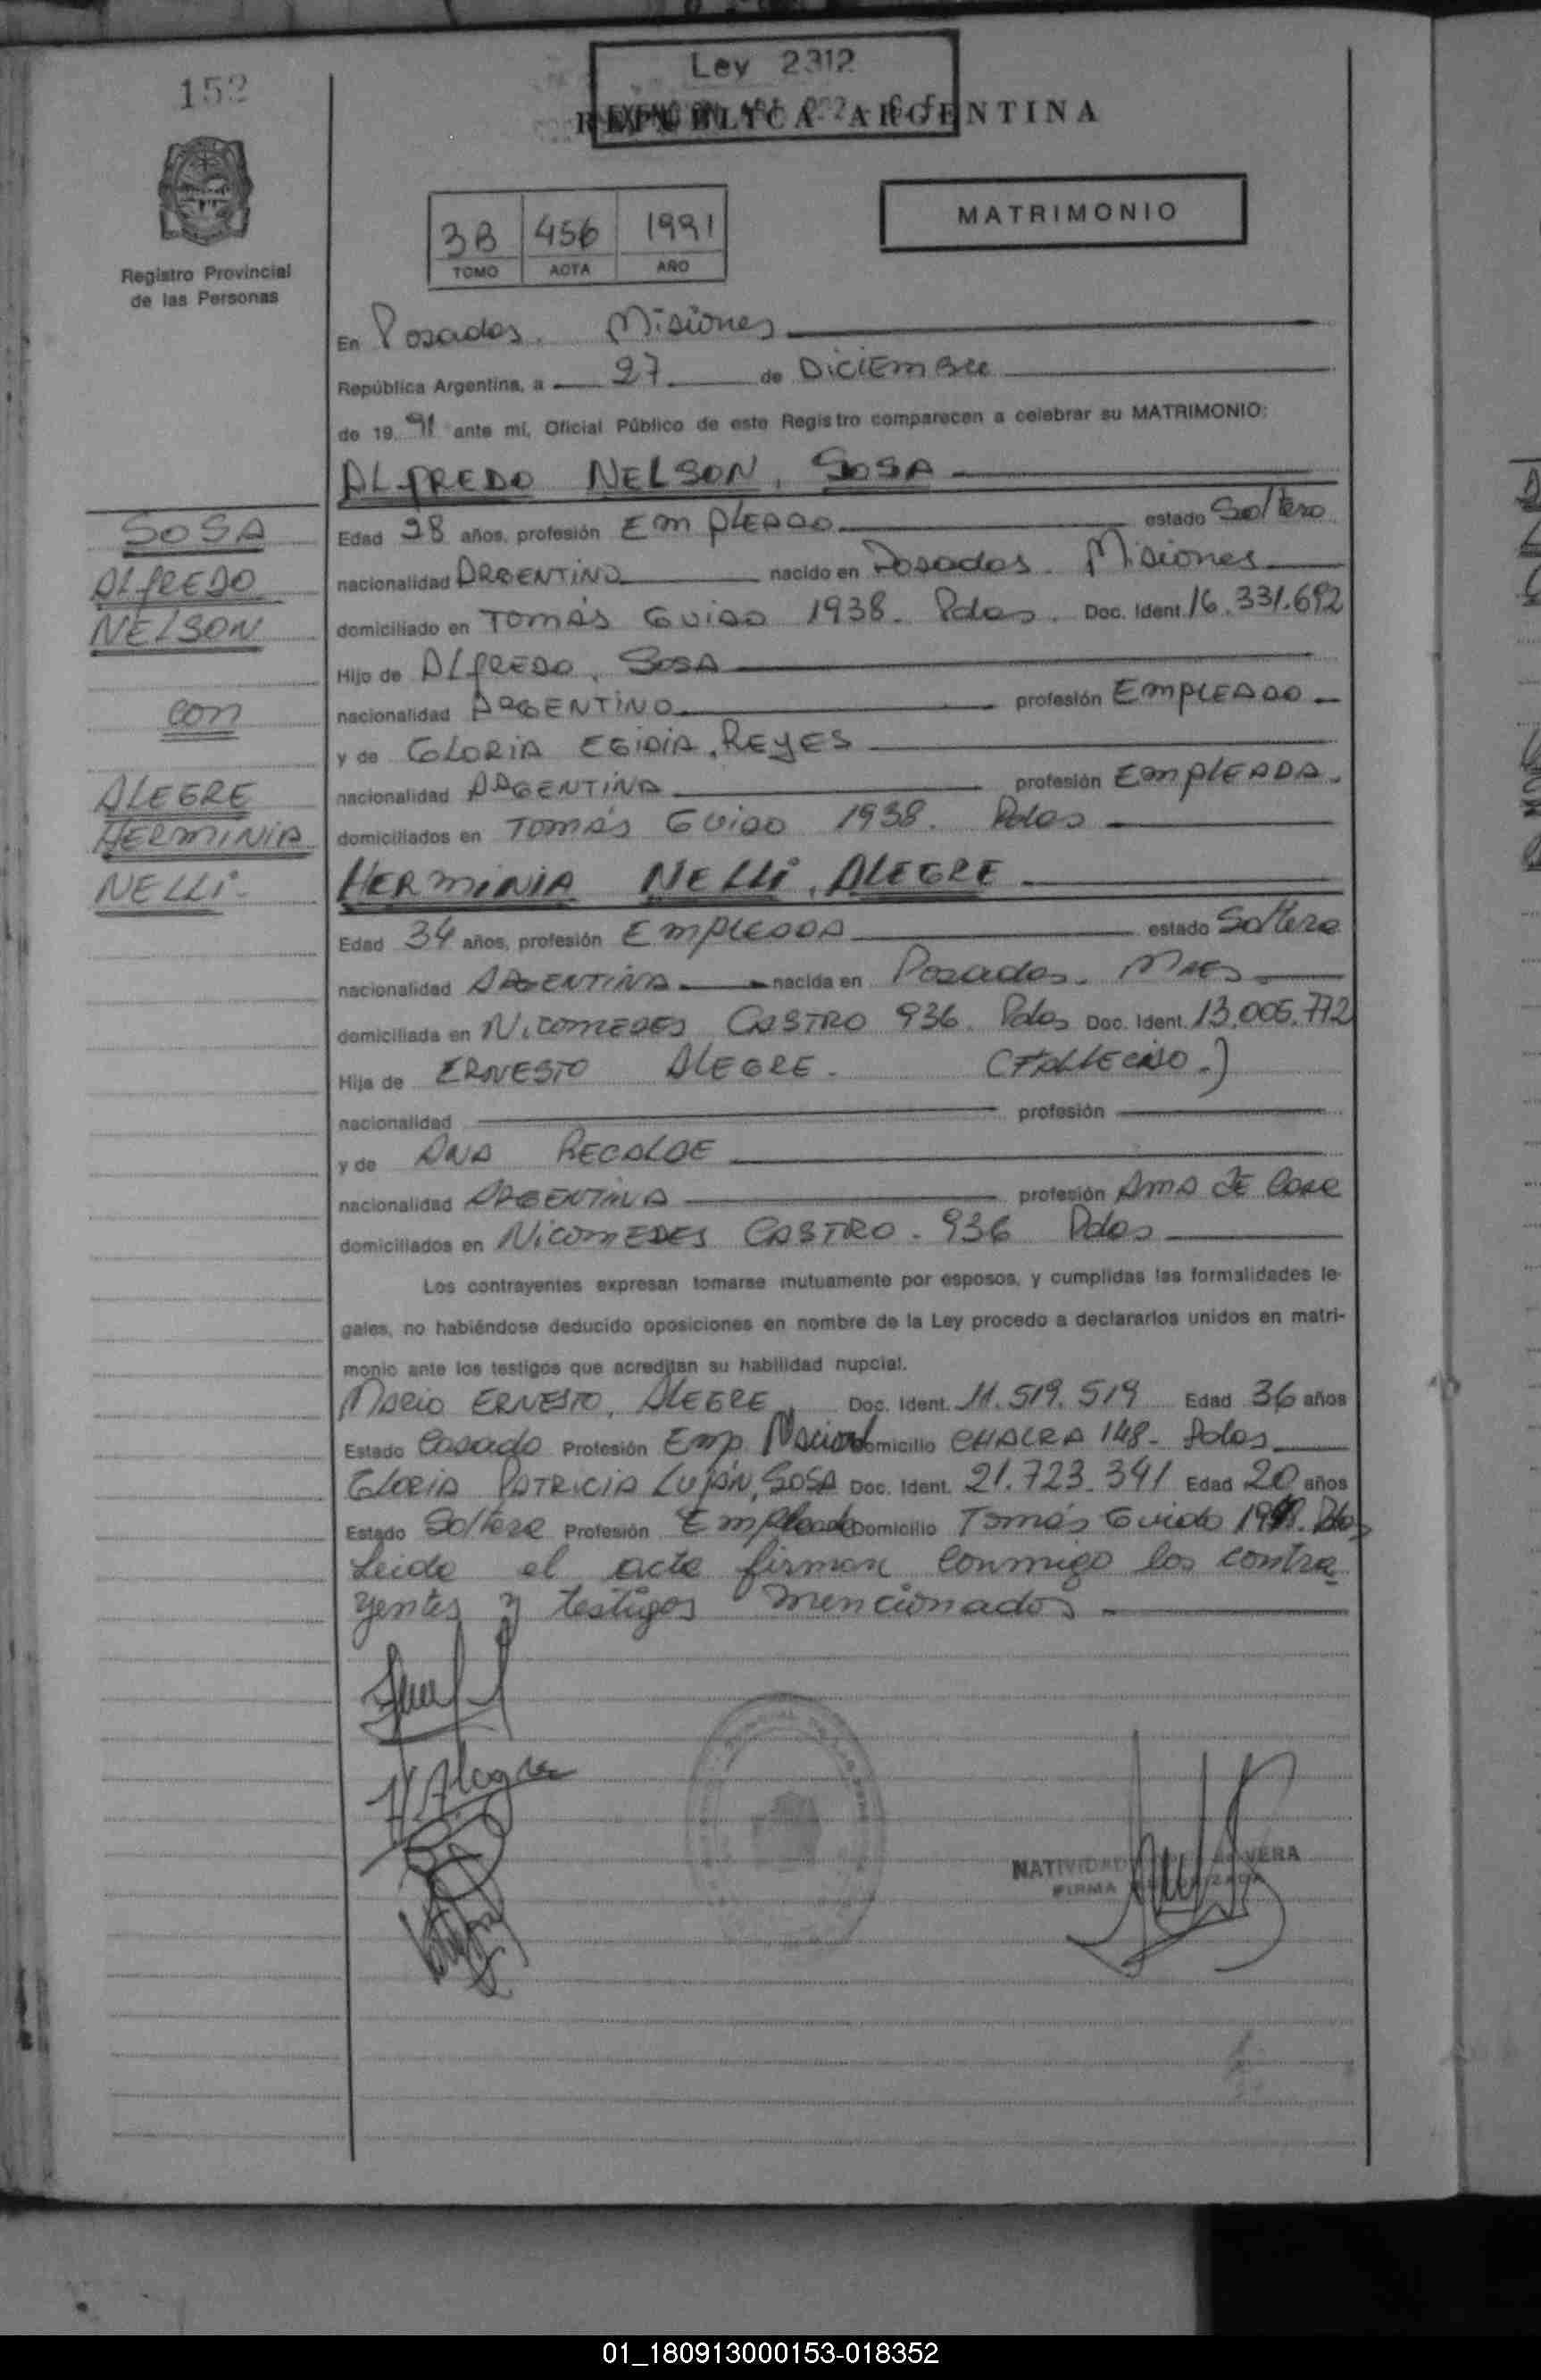 152
Ley 2312
REPUBLICA ARGENTINA
Registro Provincial
de las Personas
MATRIMONIO
3B 456 1991
TOMO ACTA AÑO
En Posadas. Misiones
República Argentina, a 27 de Diciembre
de 19 91 ante mí, Oficial Público de este Registro comparecen a celebrar su MATRIMONIO:
ALFREDO NELSON, SOSA
SOSA
ALFREDO
NELSON
con
ALEGRE
HERMINIA
NELLI.
Edad 28 años, profesión EMPLEADO estado Soltero
nacionalidad ARGENTINO nacido en Posadas. Misiones
domiciliado en TOMÁS GUIDO 1938. Pdas. Doc. Ident. 16.331.692
Hijo de ALFREDO, SOSA
nacionalidad ARGENTINO profesión EMPLEADO
y de GLORIA EGIDIA, REYES
nacionalidad ARGENTINA profesión EMPLEADA.
domiciliados en TOMÁS GUIDO 1938. Pdas
HERMINIA NELLI, ALEGRE
Edad 34 años, profesión EMPLEADA estado Soltera
nacionalidad ARGENTINA nacida en Posadas. Mnes
domiciliada en NICOMEDES CASTRO 936. Pdas Doc. Ident. 13.005.772
Hija de ERNESTO ALEGRE. (FALLECIDO.)
nacionalidad profesión
y de ANA RECALDE
nacionalidad ARGENTINA profesión AMA DE Casa
domiciliados en NICOMEDES CASTRO. 936 Pdas
Los contrayentes expresan tomarse mutuamente por esposos, y cumplidas las formalidades le-
gales, no habiéndose deducido oposiciones en nombre de la Ley procedo a declararlos unidos en matri-
monio ante los testigos que acreditan su habilidad nupcial.
MARIO ERNESTO, ALEGRE, Doc. Ident. 11.519.519 Edad 36 años
Estado Casado Profesión Emp. Nacional Domicilio CHACRA 148. Pdas
GLORIA PATRICIA LUJÁN, SOSA Doc. Ident. 21.723.341 Edad 20 años
Estado Soltera Profesión Empleada Domicilio Tomás Guido Pdas
Leida el acta firman conmigo los contra
yentes y testigos mencionados
H Alegre
NATIVIDAD VERA
FIRMA
01_180913000153-018352